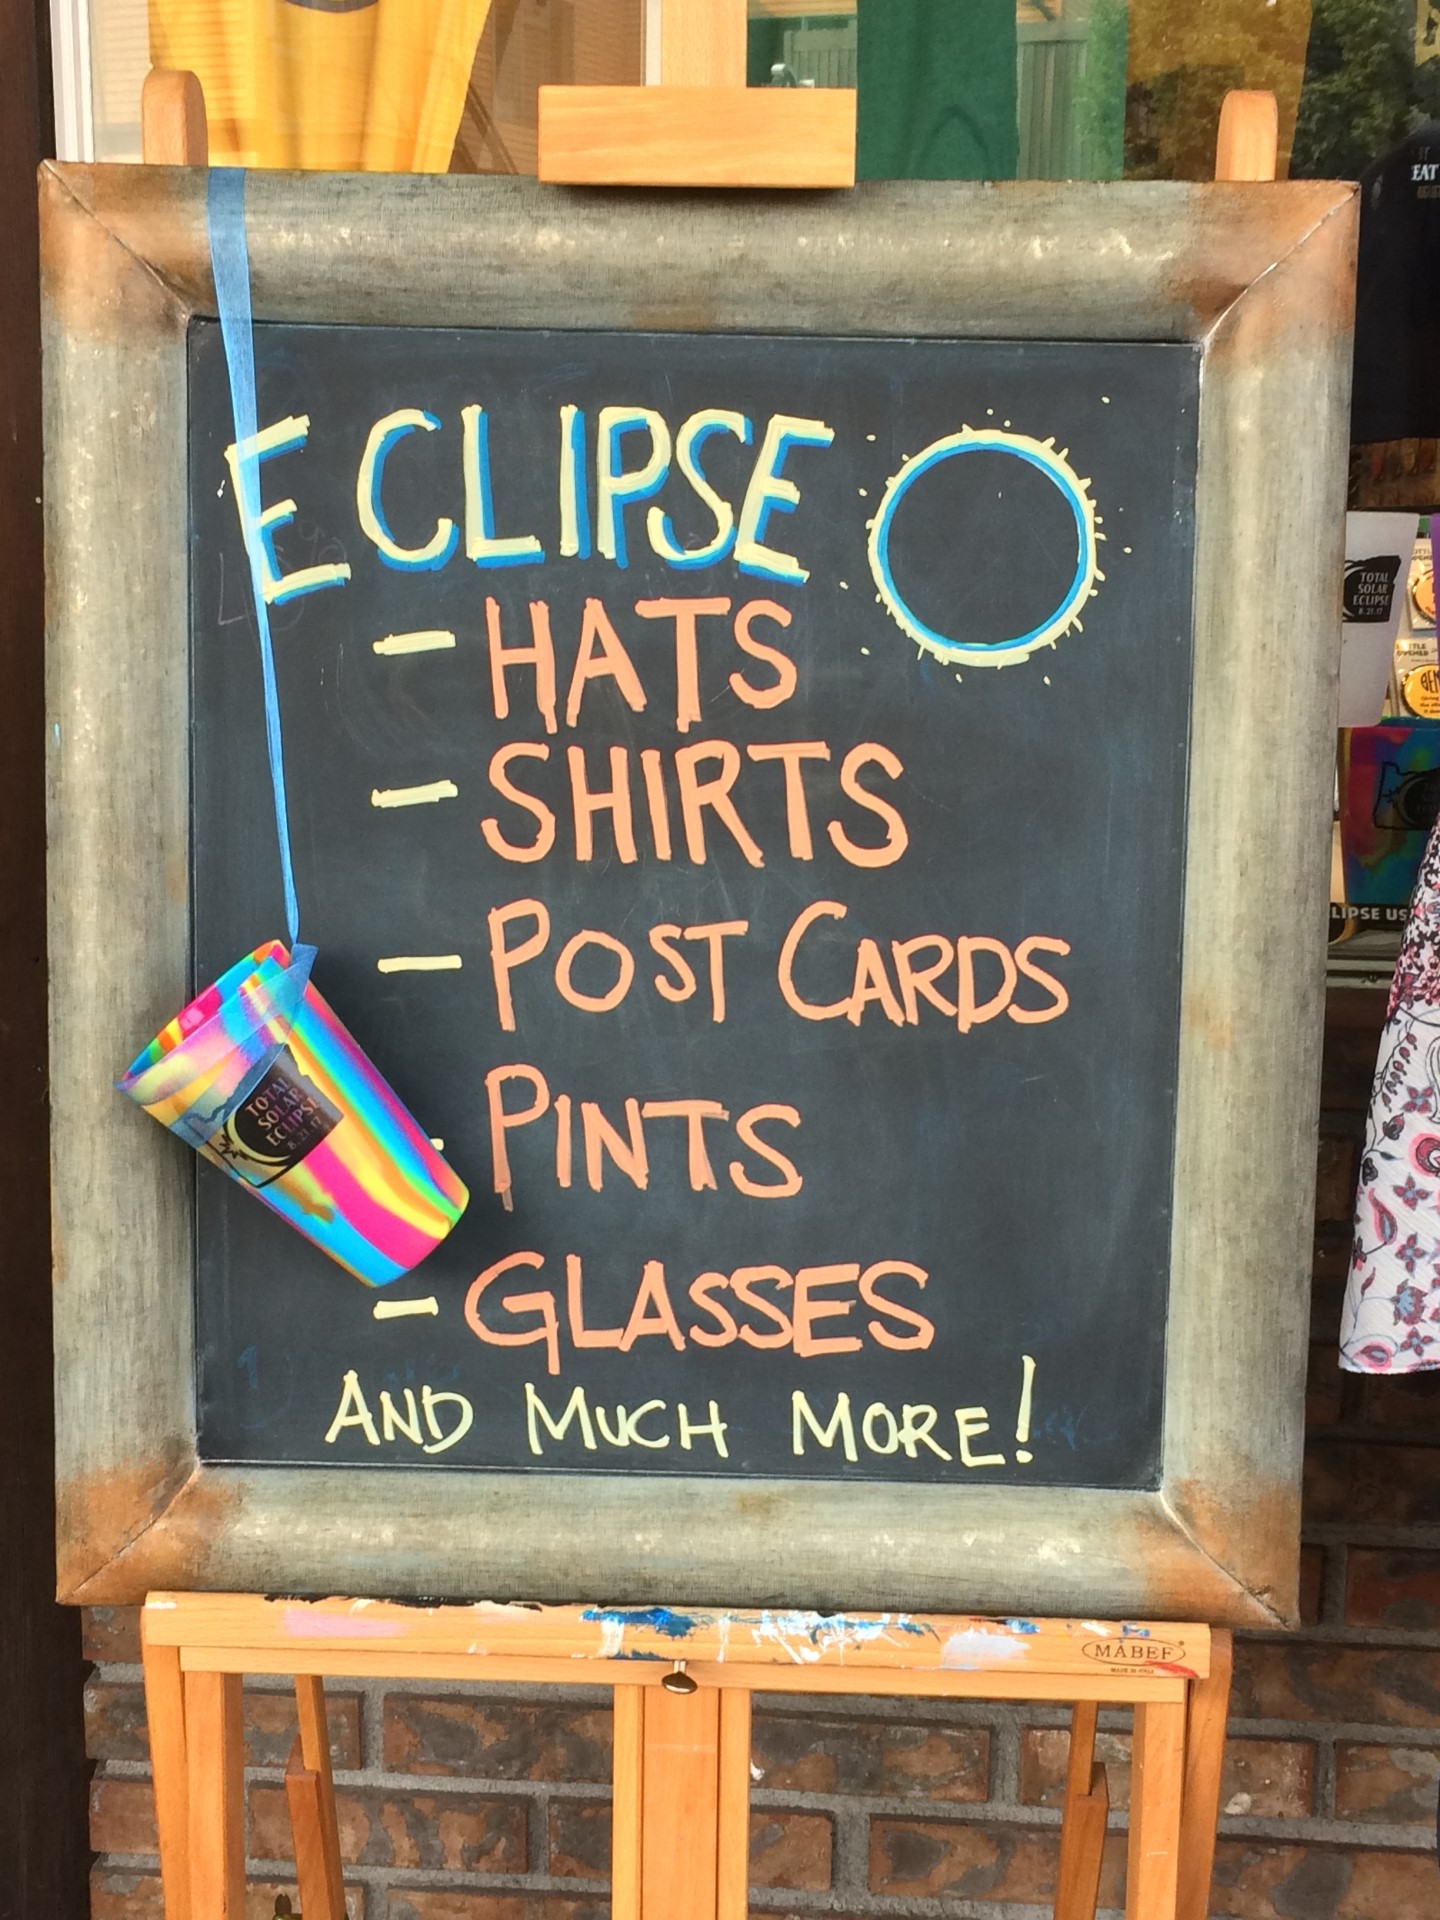 ECLIPSE
- HATS
- SHIRTS
- POST CARDS
- PINTS
- GLASSES
AND MUCH MORE!
TOTAL
SOLAR
ECLIPSE
8.21.17
MABEF
MADE IN ITALY
EAT
TOTAL
SOLAR
ECLIPSE
8.21.17
BEN
LIPSE US